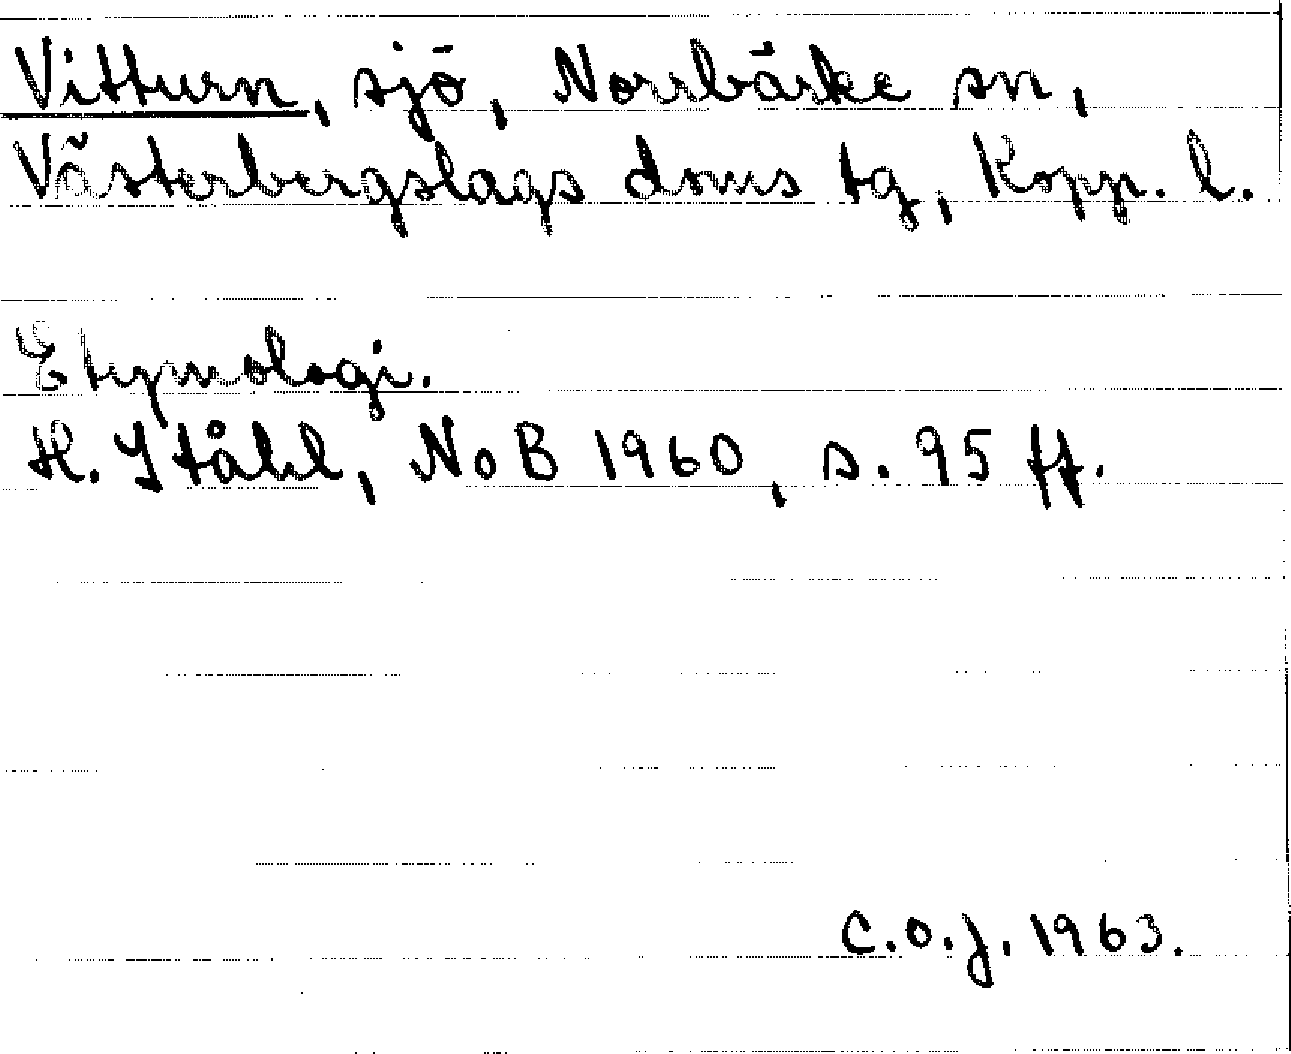 Vitturn, sjö, Norrbärke sn,
Västerbergslags doms tg, Kopp. l.
Etymologi.
H. Ståhl, NoB 1960, s. 95 ff.
C.O.J. 1963.